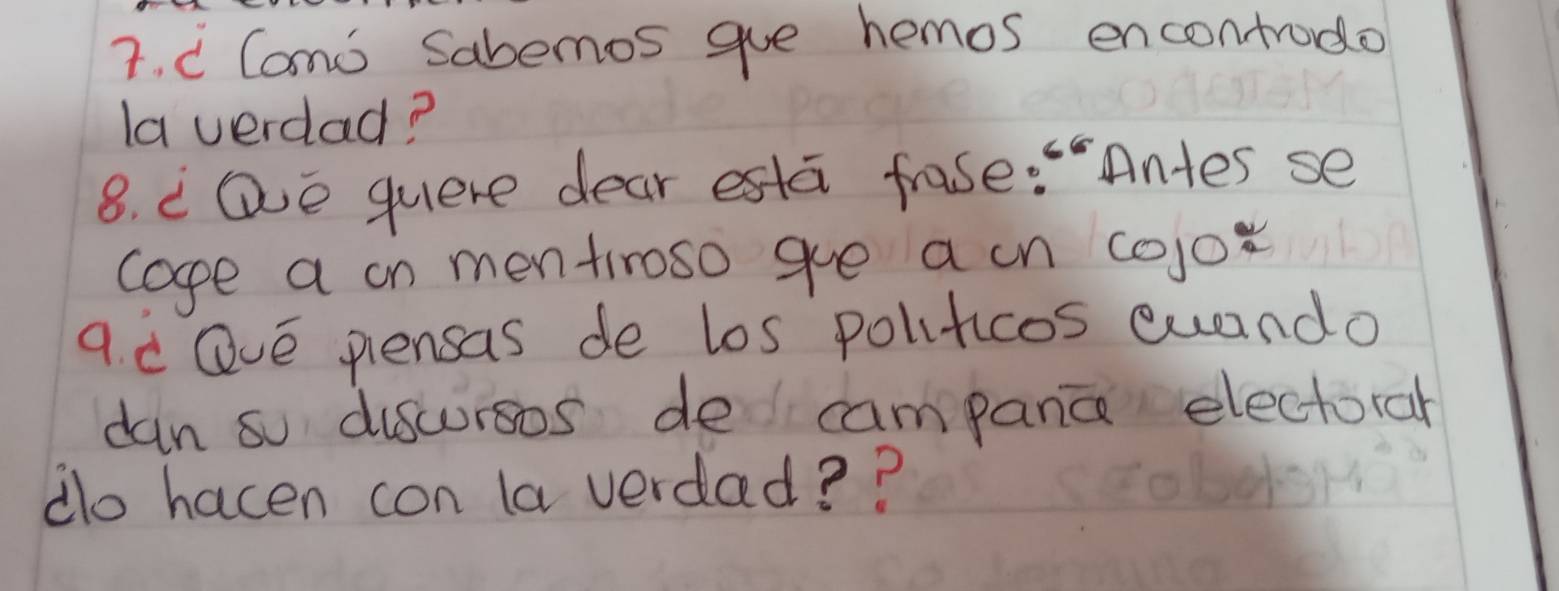 7. ¿Comó sabemos que hemos encontrado
la verdad?
8. ¿Qué quiere decir está frase: "Antes se
coge a un mentiroso que a un cojo"
9. ¿Qué piensas de los politicos cuando
dan su discursos de campanā electoral
¿lo hacen con la verdad??